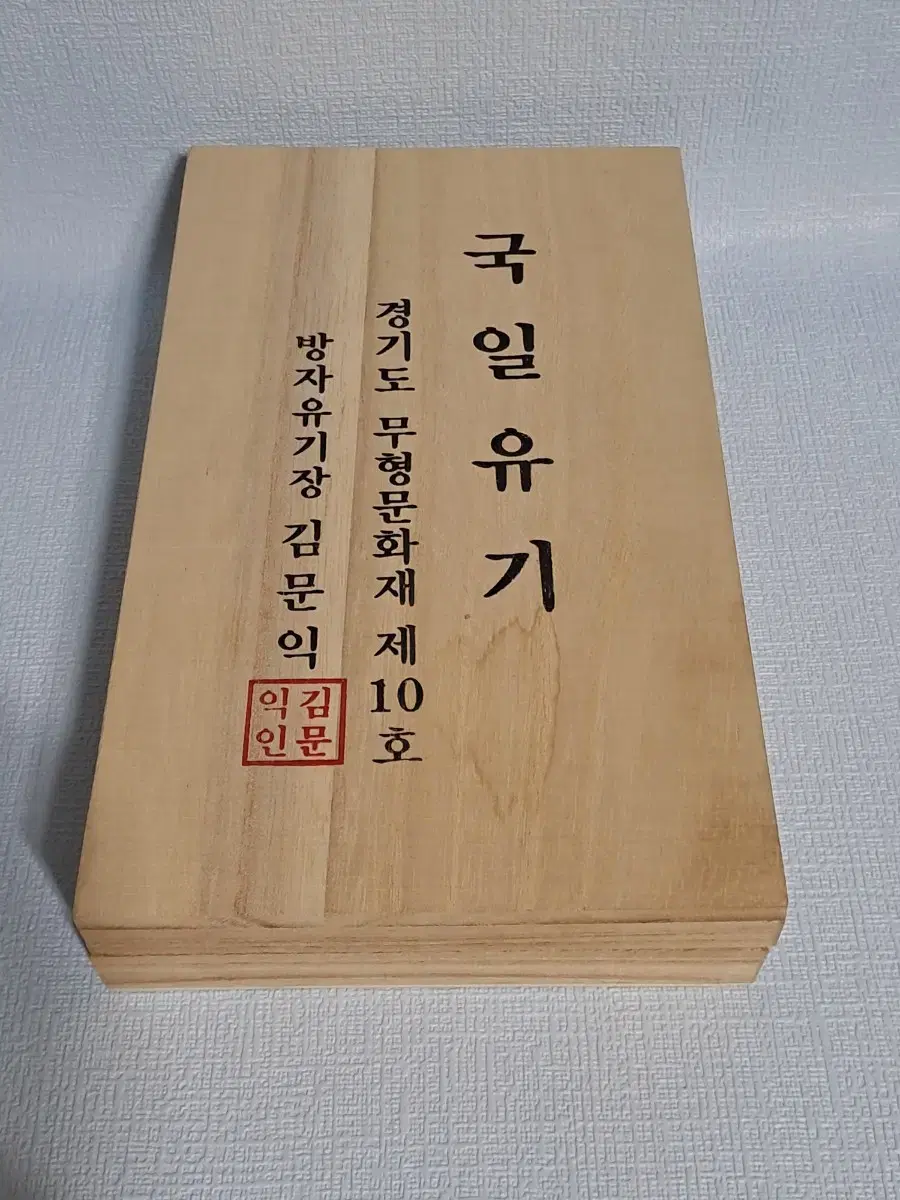 국일유기
경기도 무형문화재 제10호
방자유기장 김문익
김문
익인